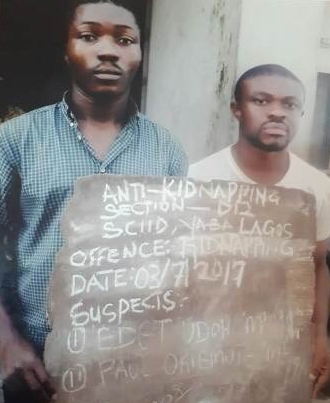 ANTI-KIDNAPPING
SECTION - D12
SCIID, YABA LAGOS
OFFENCE: KIDNAPPING
DATE: 03/7/2017
SUSPECTS:
(I) EDET UDOH
(II) PAUL